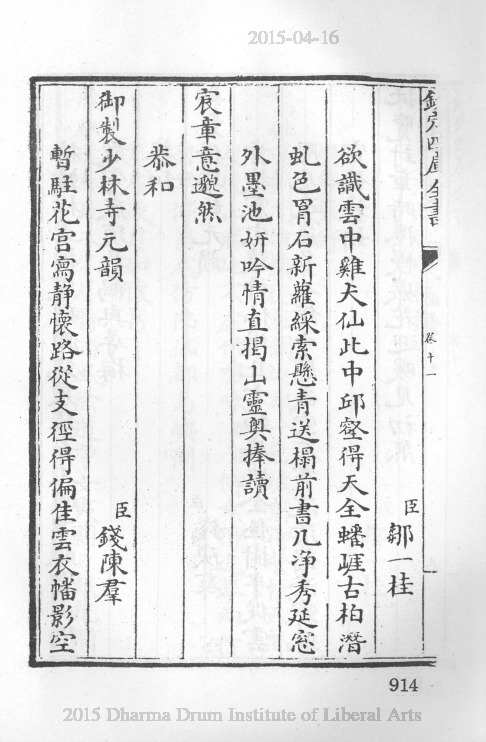 2015-04-16
欽定四庫全書
卷十一
臣鄒一桂
欲識雲中雞犬仙此中邱壑得天全蟠崖古柏潛
虬色罥石新蘿綵索懸青送榻前書几净秀延窓
外墨池妍吟情直揭山靈奥捧讀
宸章意邈然
恭和
御製少林寺元韻
臣錢陳羣
暫駐花宫寫静懷路從支徑得偏佳雲衣幡影空
914
2015 Dharma Drum Institute of Liberal Arts